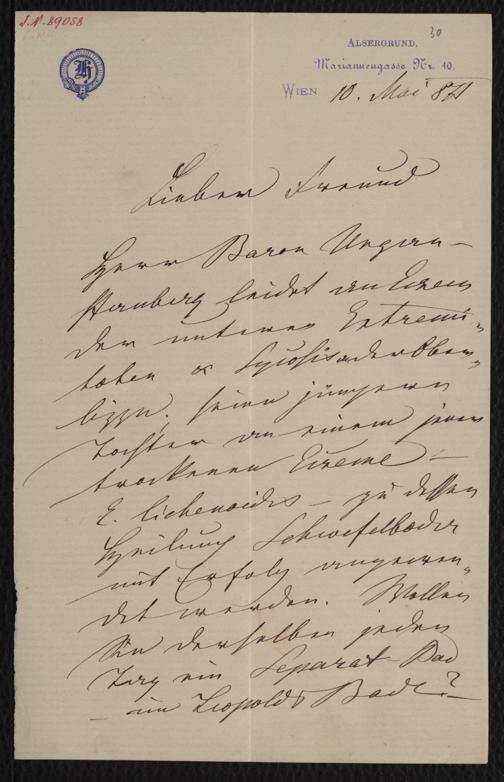 J.N. 89058
30
H
ALSERGRUND.
Mariannengasse Nr. 10.
WIEN 10. Mai 871
Lieber Freund
Herr Baron Ungern-
Sternberg leidet an Eczem
der unteren Extremi„
täten & Sycosis der Ober„
lippe, seine jüngere
Tochter an einem jener
trockenen Eczeme –
E. lichenoides – zu dessen
Heilung Schwefelbäder
mit Erfolg angewen„
det werden. Wollen
Sie derselben jeden
Tag ein Separat Bad
im Leopolds Bade?